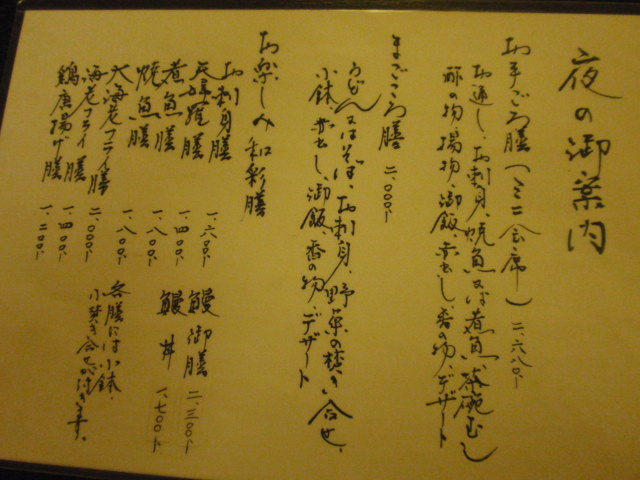 夜の御案内
お手ごろ膳（ミニ会席）二、六八〇-
お通し、お刺身、焼魚又は煮魚、茶碗むし
酢の物、揚物、御飯、赤出し、香の物、デザート
まごころ膳 二、〇〇〇-
うどん又はそば、お刺身、野菜の焚き合せ、
小鉢、赤出し、御飯、香の物、デザート
お楽しみ和彩膳
お刺身膳 一、六〇〇-
天婦羅膳 一、四〇〇-
煮魚膳 一、八〇〇-
焼魚膳 一、八〇〇-
大海老フライ膳 二、〇〇〇-
海老フライ膳 一、四〇〇-
鶏唐揚げ膳 一、二〇〇-
鰻御膳 二、三〇〇-
鰻丼 一、七〇〇-
各膳には小鉢・
小焚き合せが付きます。